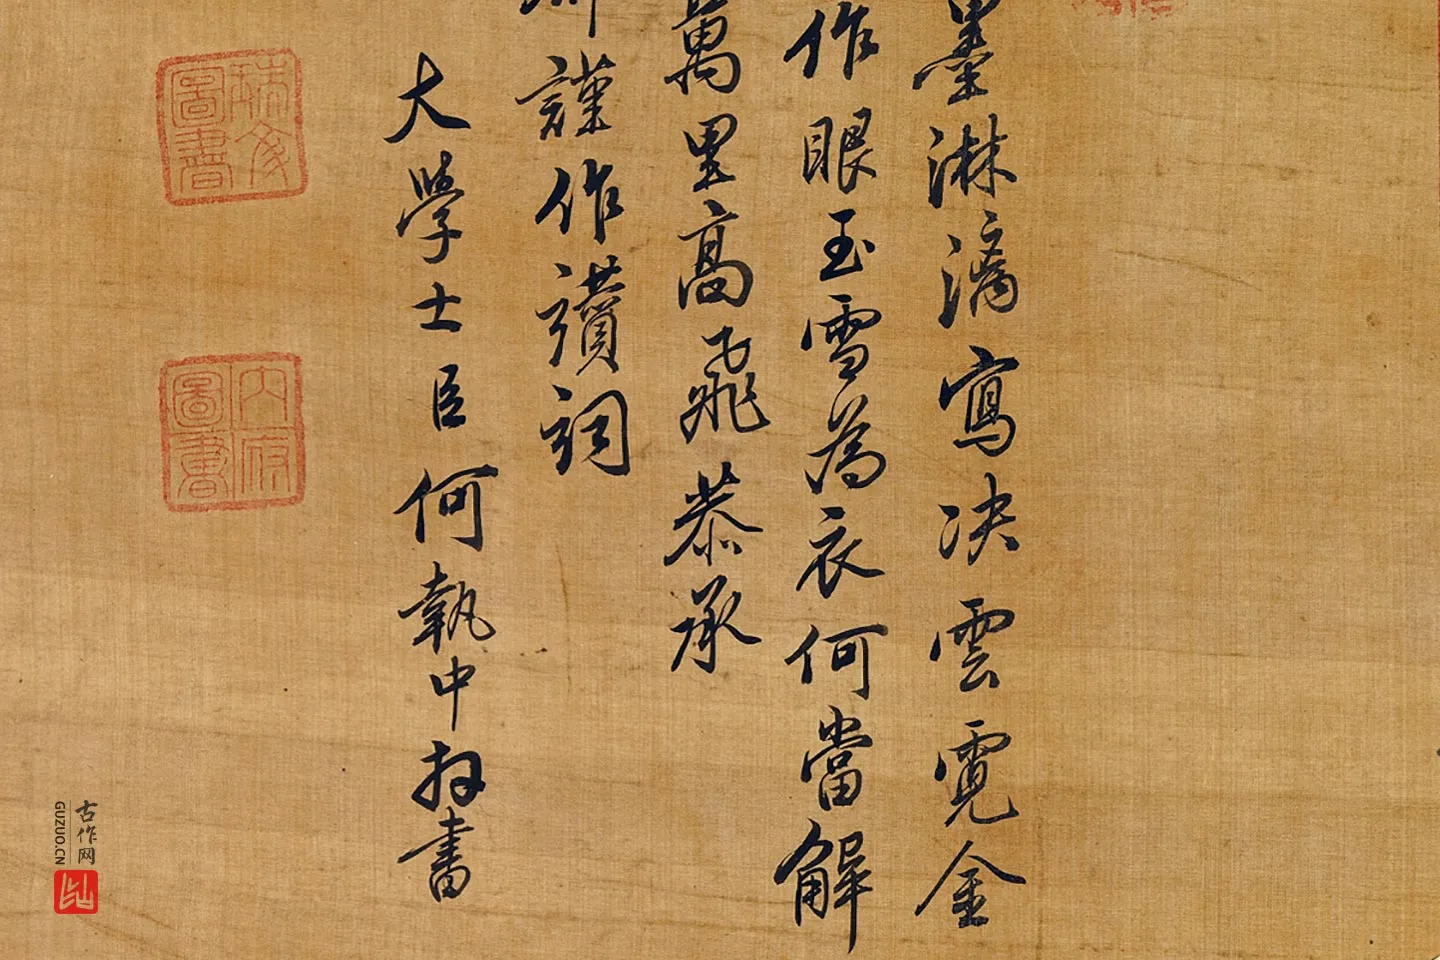 墨淋漓寫决雲霓金
作眼玉雪為衣何當解
萬里高飛恭承
謹作讚詞
大學士臣何執中拜書
圖書
內府圖書
古作网
GUZUO.CN